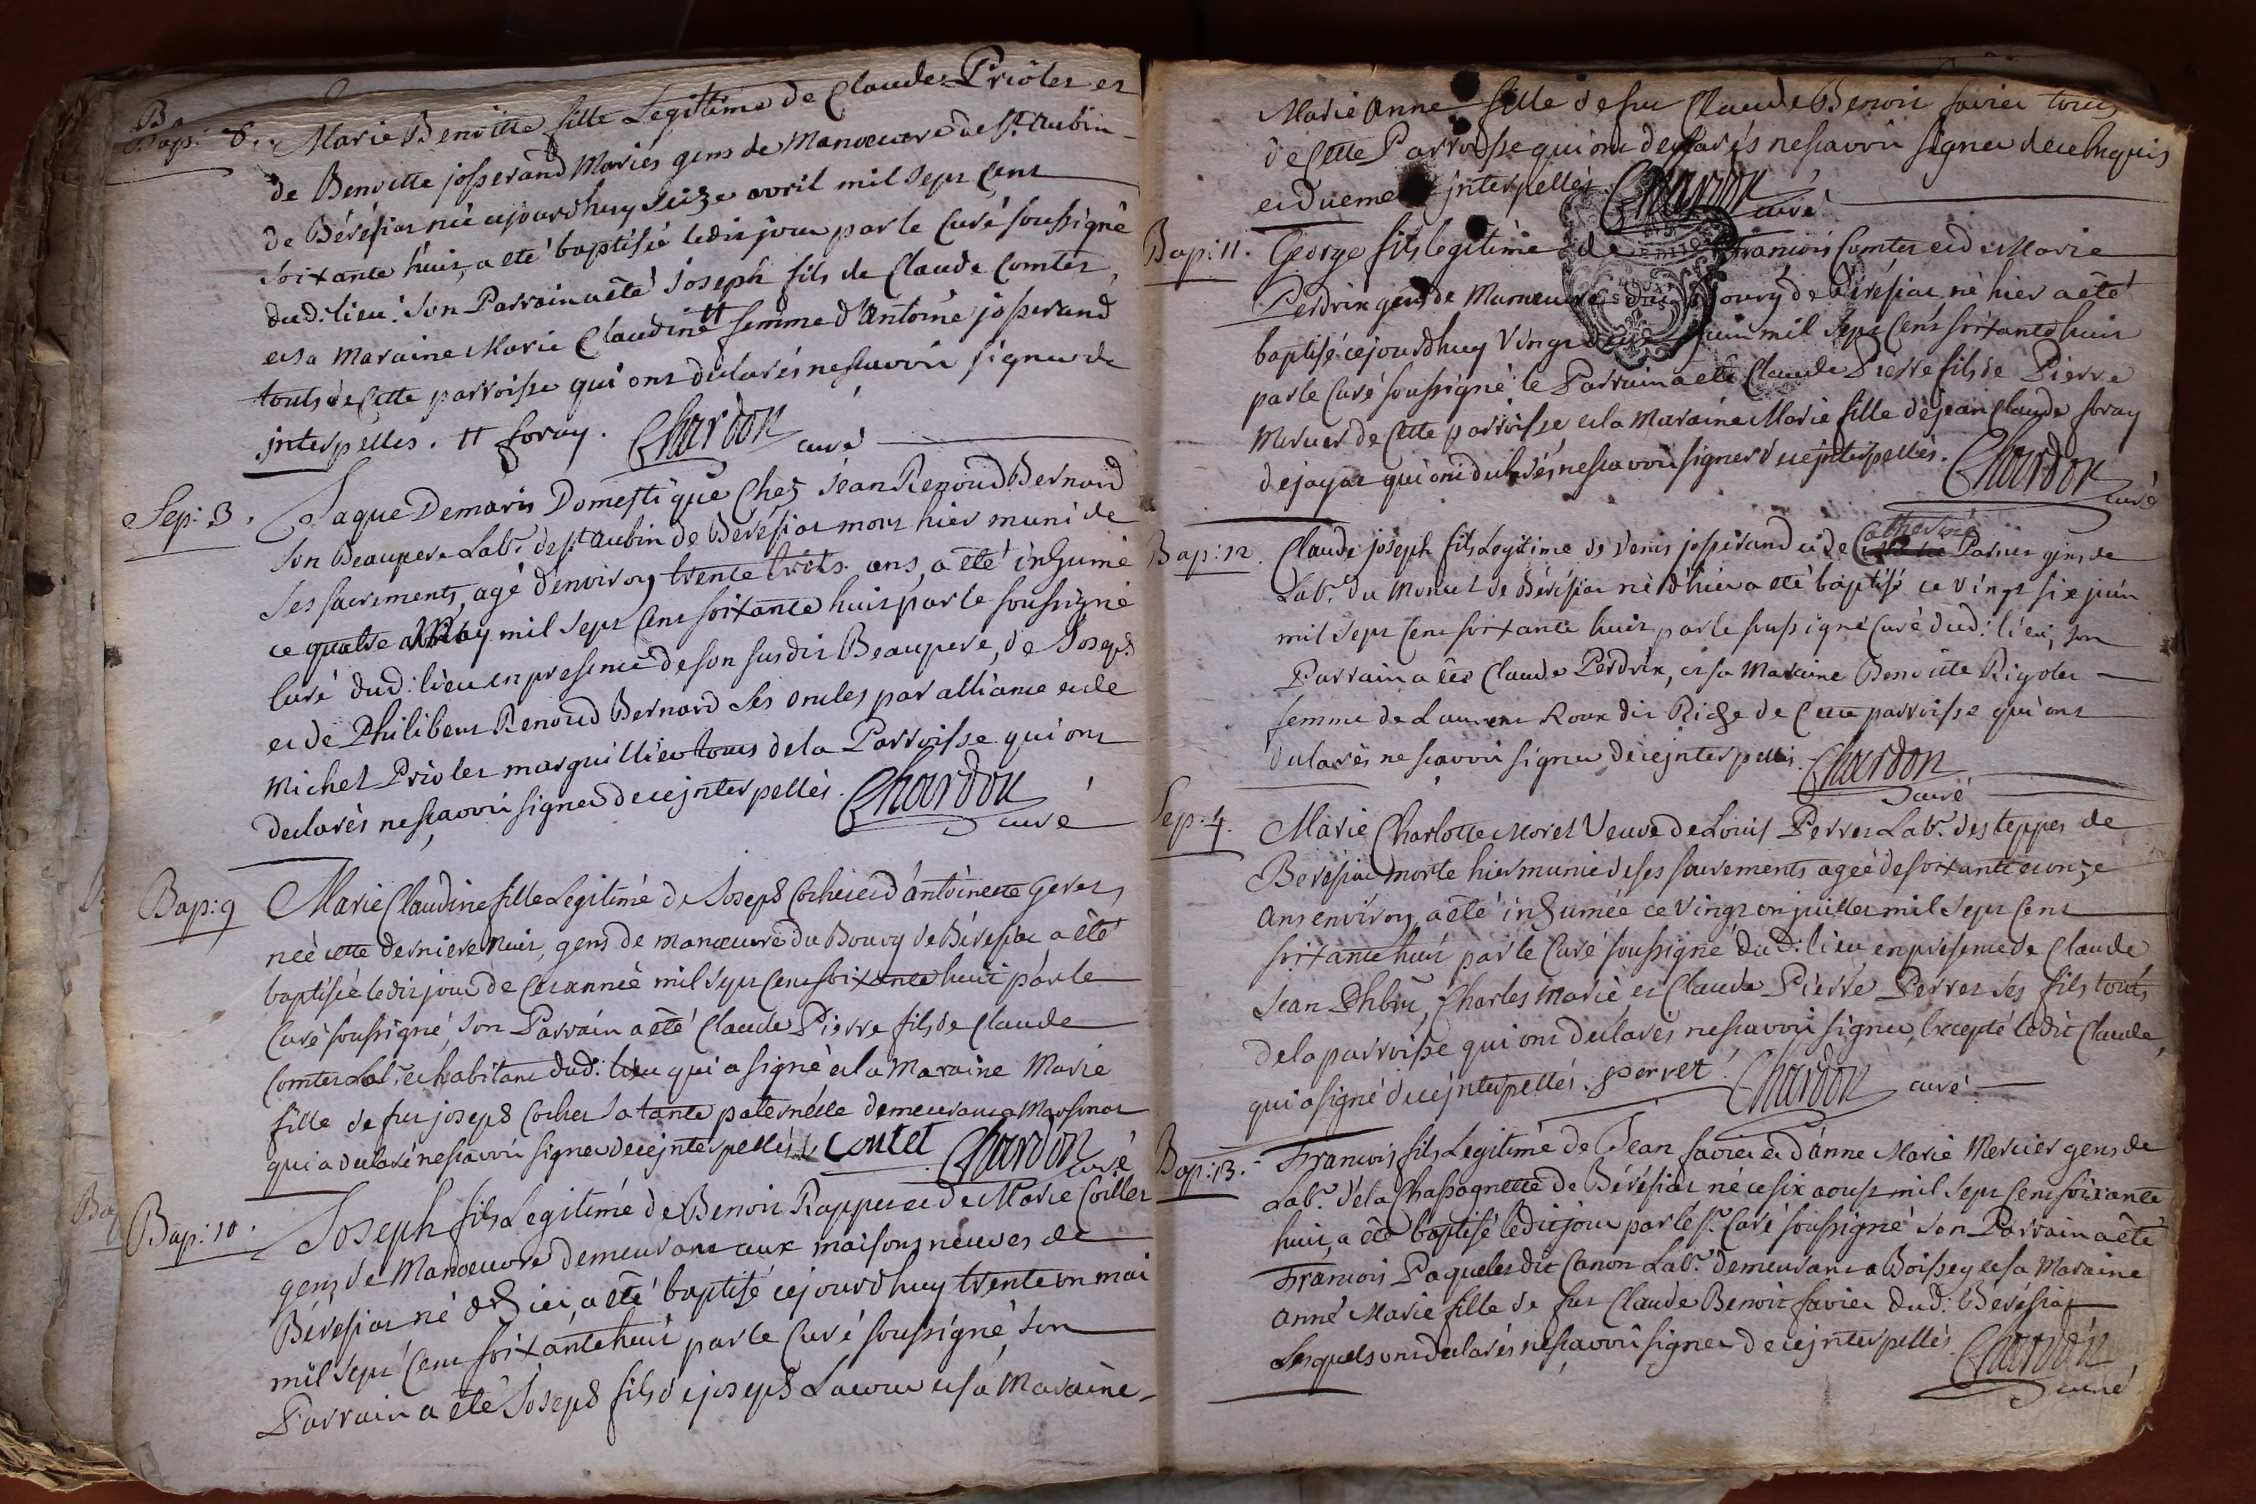 Bap: 8. Marie Benoitte fille Legitime de Claude Prioler et
de Benoitte josserand Mariés gens de Manoeuvre de St Aubin
de Béréfiat née cejourdhuy seize avril mil sept cent
soixante huit, a eté baptisée ledit jour par le Curé soussigné
dud: lieu. Son Parrain a été Joseph fils de Claude Comtet,
et sa Maraine Marie Claudine tt femme d'Antoine josserand
touts de Cette parroisse qui ont déclarés nescavoir signer de
interpellés. tt foray. Chardon curé
Sep: 3. Jaque Demaris Domestique Chez Jean Renoud Bernard
son Beaupere Labr. de St Aubin de Béréfiat mort hier muni de
ses sacrements, agé d'environ trente trois ans, a été inhumé
ce quatre may mil sept cent soixante huit par le soussigné
Curé dud: lieu en presence de son susdit Beaupere, de Joseph
et de Philibert Renoud Bernard ses oncles par alliance et de
Michel Prioler marguillier tous de la Parroisse qui ont
declarés nescavoir signer de ce jnterpellés. Chardon
curé
Bap: 9 Marie Claudine fille Legitime de Joseph Cocher et d'antoinette Geret,
née cette derniere nuit, gens de manoeuvre du Bourg de Béréfiat a été
baptisée ledit jour de Cet année mil sept cent soixante huit par le
Curé soussigné, son Parrain a été Claude Pierre fils de Claude
Comtet Labr. et habitant dud: lieu qui a signé et la Maraine Marie
fille de fut joseph Cocher sa tante paternelle demeurant a Marsonat
qui a declaré nescavoir signer de ce jnterpellés. Contet Chardon
curé
Bap: 10. Joseph fils Legitimé de Benoit Rappet et de Marie Coillet
gens de Manoeuvre demeurant aux maisons neuves de
Béréfiat né d'hier, a été baptisé cejourdhuy trente un mai
mil sept cent soixante huit par le Curé soussigné, son
Parrain a été Joseph fils de joseph Lacour et sa Maraine
Marie Anne fille de fut Claude Benoit favier tous
de Cette Parroisse qui ont declarés nescavoir signer de ce enquis
et dueme jnterpellés. Chardon
curé
Bap: 11. George fils legitime de Francois Comtet et de Marie
Perdrix gens de Manoeuvre du Bourg de Béréfiat, né hier a été
baptisé cejourdhuy Vingt juin mil sept cent soixante huit
par le Curé soussigné le Parrain a été Claude Pierre fils de Pierre
Mercier de Cette parroisse et la Maraine Marie fille de jean Claude foray
de jayat qui ont declarés nescavoir signer de ce jnterpellés. Chardon
curé
Bap: 12. Claude joseph fils Legitime de Denis josserand et de Catherine Parnet gens de
Labr. du Monret de Béréfiat né d'hier a eté baptisé ce vingt six juin
mil sept cent soixante huit par le soussigné Curé dud: lieu, son
Parrain a été Claude Perdrix, et sa Maraine Benoitte Rigolet
femme de Laurent Roux dit Riche de Cette parroisse qui ont
declarés nescavoir signer de ce jnterpellés. Chardon
curé
Sep: 4. Marie Charlotte Morel Veuve de Louis Perret Labr. des teppes de
Béréfiat morte hier munie de ses sacrements agée de soixante et onze
ans environ, a été inhumée ce vingt un juillet mil sept cent
soixante huit par le Curé soussigné dud: lieu en presence de Claude
Jean Phbrt, Charles Marie et Claude Pierre Perret ses fils touts
de la parroisse qui ont declarés nescavoir signer, Excepté ledit Claude,
qui a signé de ce jnterpellés. perret Chardon curé
Bap: 13. Francois fils Legitime de Jean favier et d'anne Marie Mercier gens de
Labr. de la Chassagnette de Béréfiat né ce six aoust mil sept cent soixante
huit, a été baptisé ledit jour par le sr. Curé soussigné son Parrain a été
Francois Paquelet dit Canon Labr. demeurant a Boissey et sa Maraine
anne Marie fille de fut Claude Benoit favier dud: Béréfiat
Lesquels ont declarés nescavoir signer de ce jnterpellés. Chardon
curé